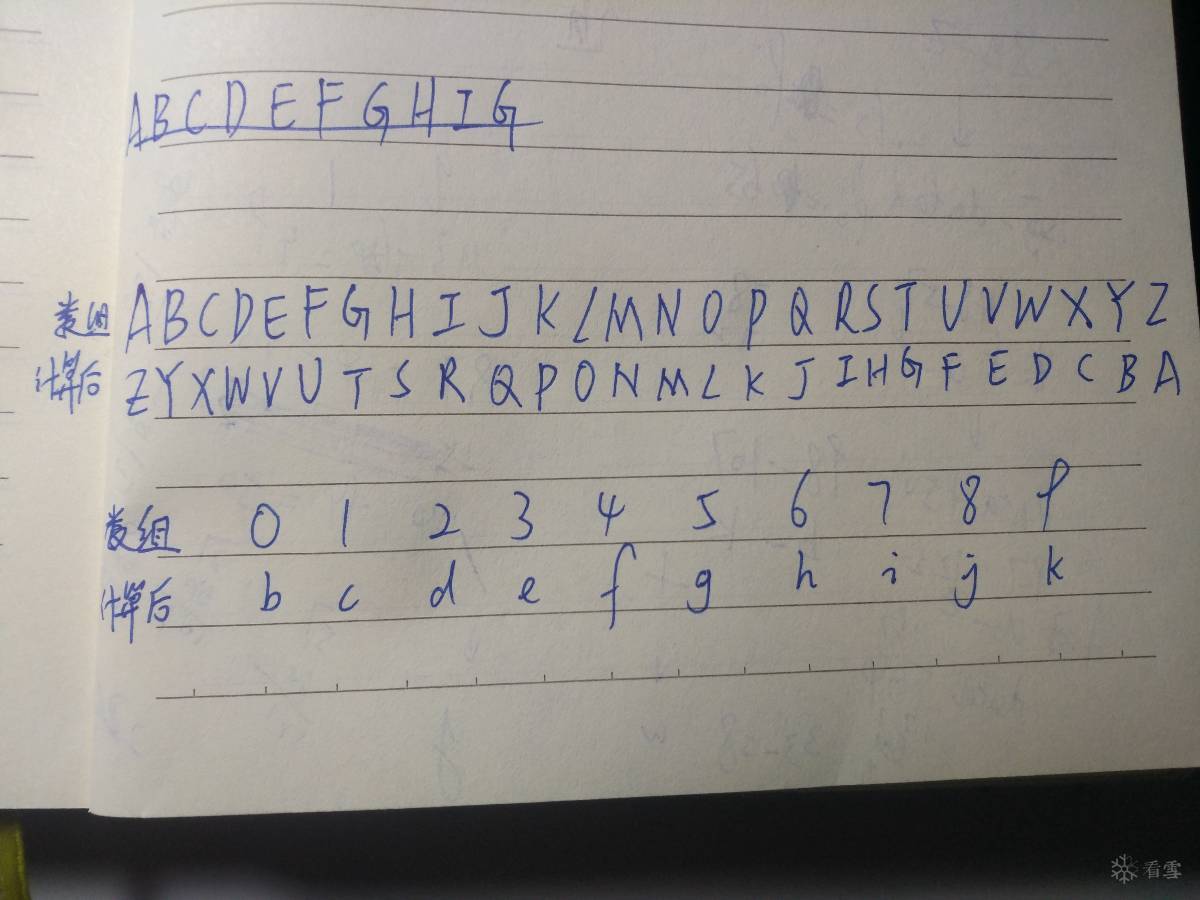 ABCDEFGHIG
数组 ABCDEFGHIJKLMNOPQRSTUVWXYZ
计算后 ZYXWVUTSRQPONMLKJIHGFEDCBA
数组 0 1 2 3 4 5 6 7 8 9
计算后 b c d e f g h i j k
看雪